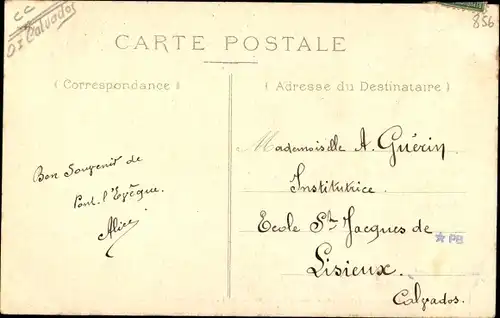 CC
Calvados
856
CARTE POSTALE
( Correspondance )
( Adresse du Destinataire )
Bon Souvenir de
Pont. l'Evêque.
Alice
Mademoiselle A. Guérin.
Institutrice.
Ecole St Jacques de
Lisieux.
Calvados.
PB